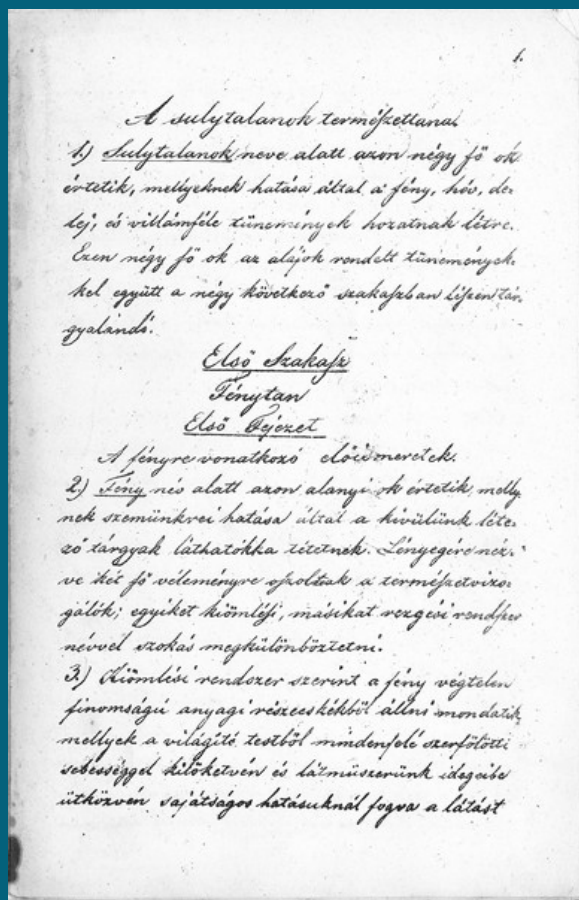 1.
A sulytalanok természettana.
1.) Sulytalanok neve alatt azon négy fő ok
értetik, mellyeknek hatása által a' fény, hév, de-
lej, és villámféle tünemények hozatnak létre.
Ezen négy fő ok az alájok rendelt tünemények-
kel együtt a négy következő szakaszban lészen tár-
gyalandó.
Első Szakasz
Fénytan
Első Fejezet
A fényre vonatkozó előismeretek.
2.) Fény név alatt azon alanyi ok értetik, melly-
nek szemünkrei hatása által a kivülünk léte-
ző tárgyak láthatókka tétetnek. Lényegére néz-
ve két fő véleményre oszoltak a természetvizs-
gálók; egyiket kiömlési, másikat rezgési rendszer
névvel szokás megkülönböztetni.
3.) Kiömlési rendszer szerint a fény végtelen
finomságú anyagi részecskékből állni mondatik,
mellyek a világító testből mindenfelé szerfölötti
sebességgel kilöketvén és látműszerünk idegeibe
ütközvén sajátságos hatásuknál fogva a látást